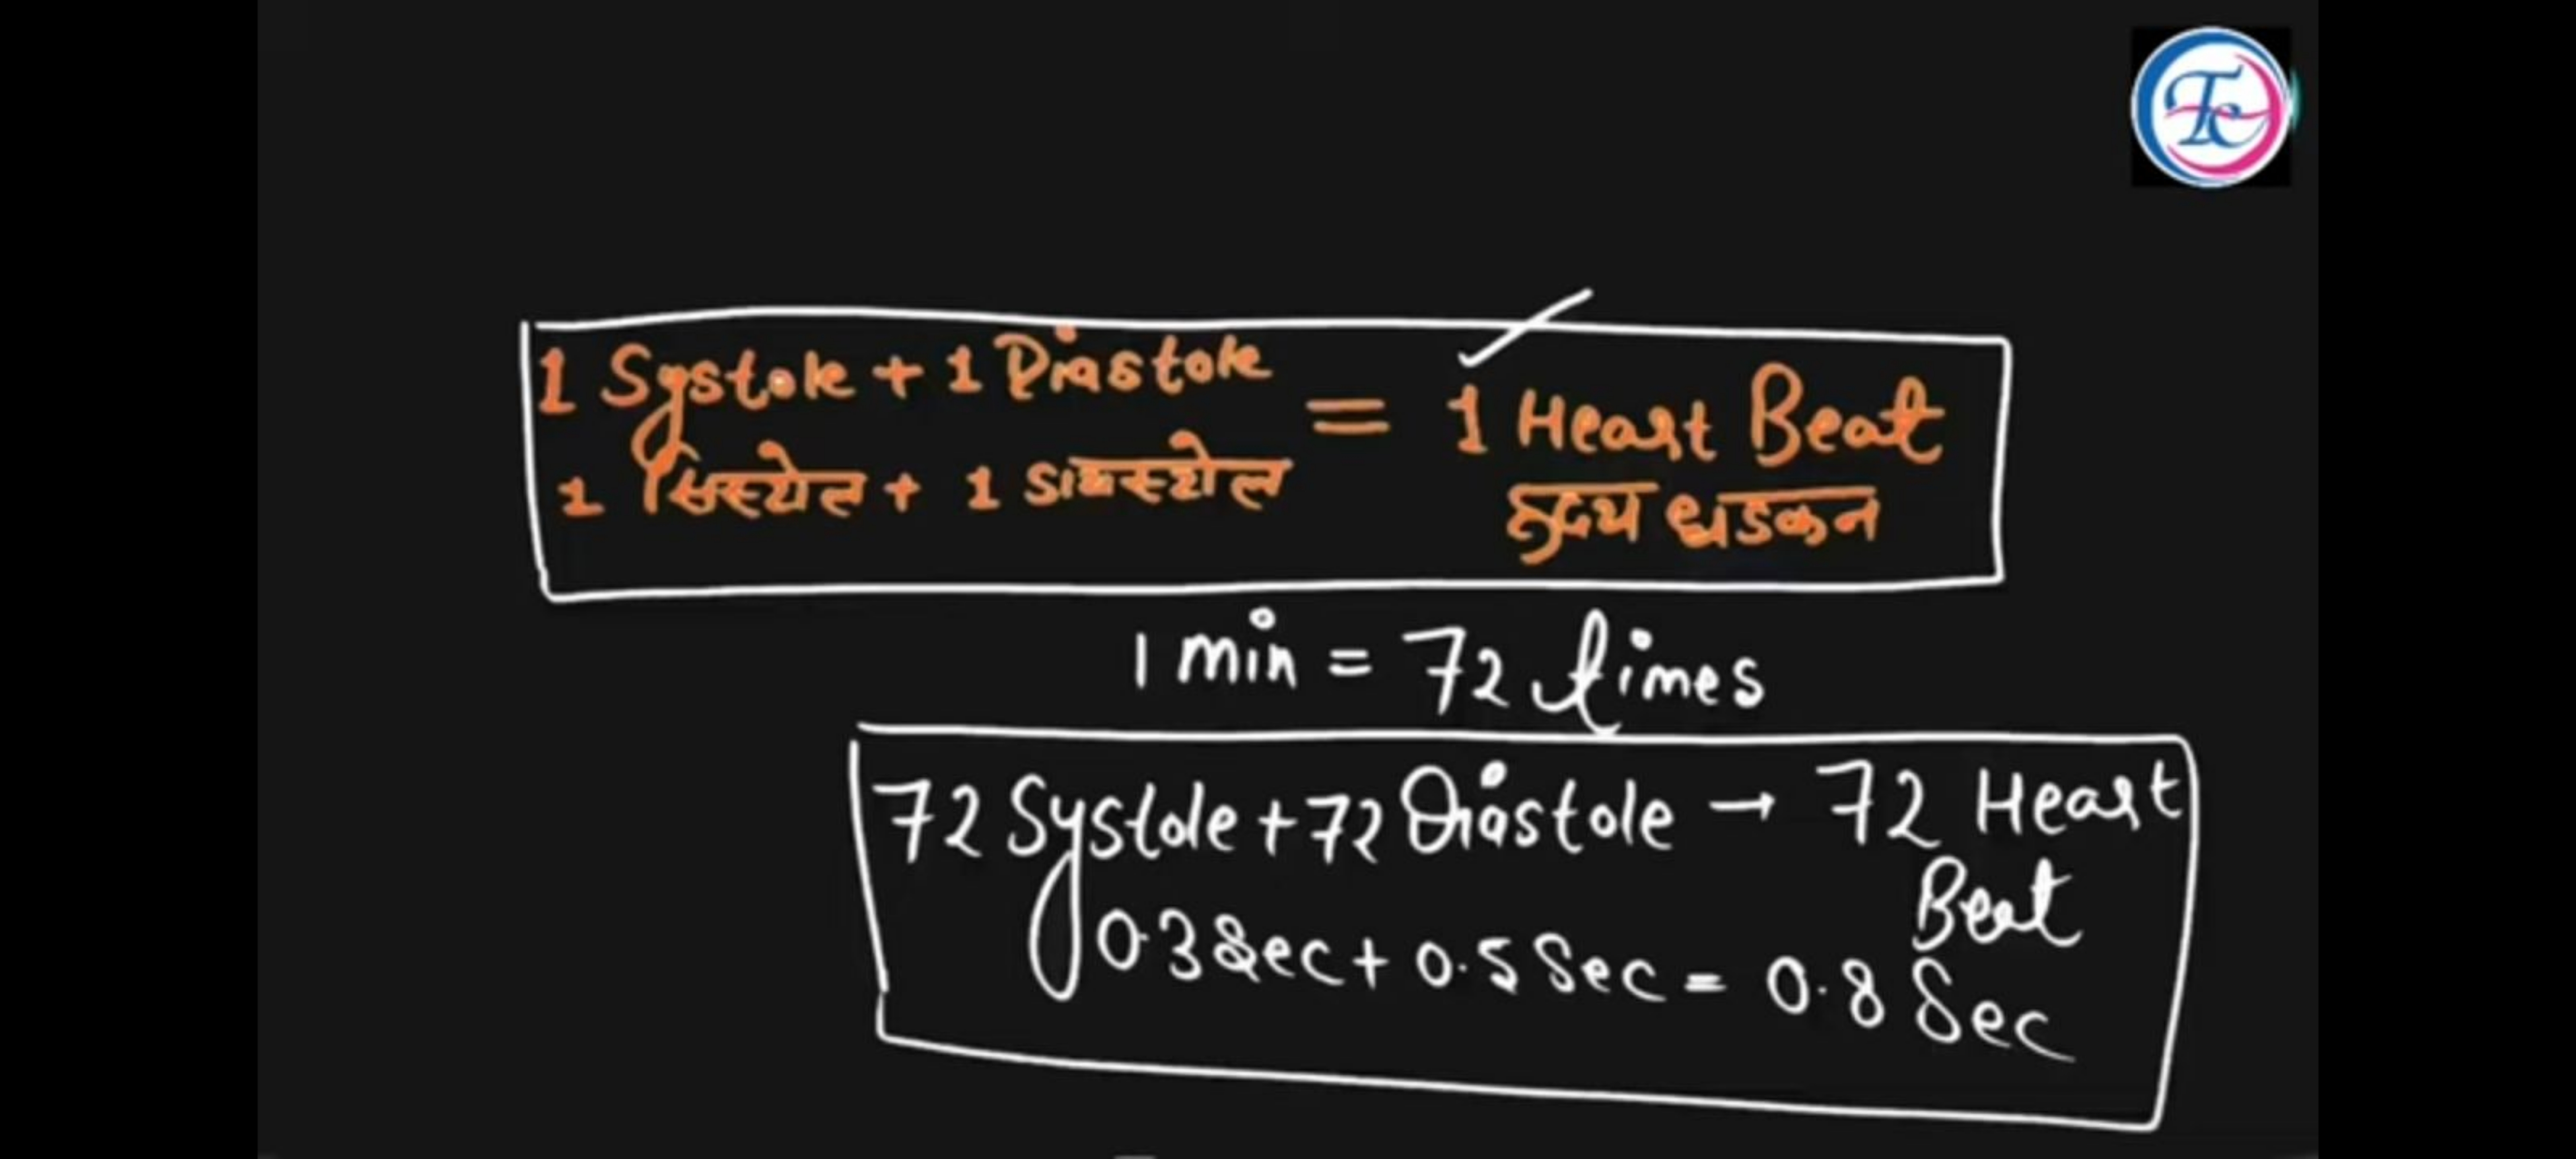 1 Systole + 1 Diastole = 1 Heart Beat
1 सिस्टोल + 1 डायस्टोल हृदय धडकन
1 min = 72 times
72 Systole + 72 Diastole → 72 Heart
Beat
0.3 Sec + 0.5 Sec = 0.8 Sec